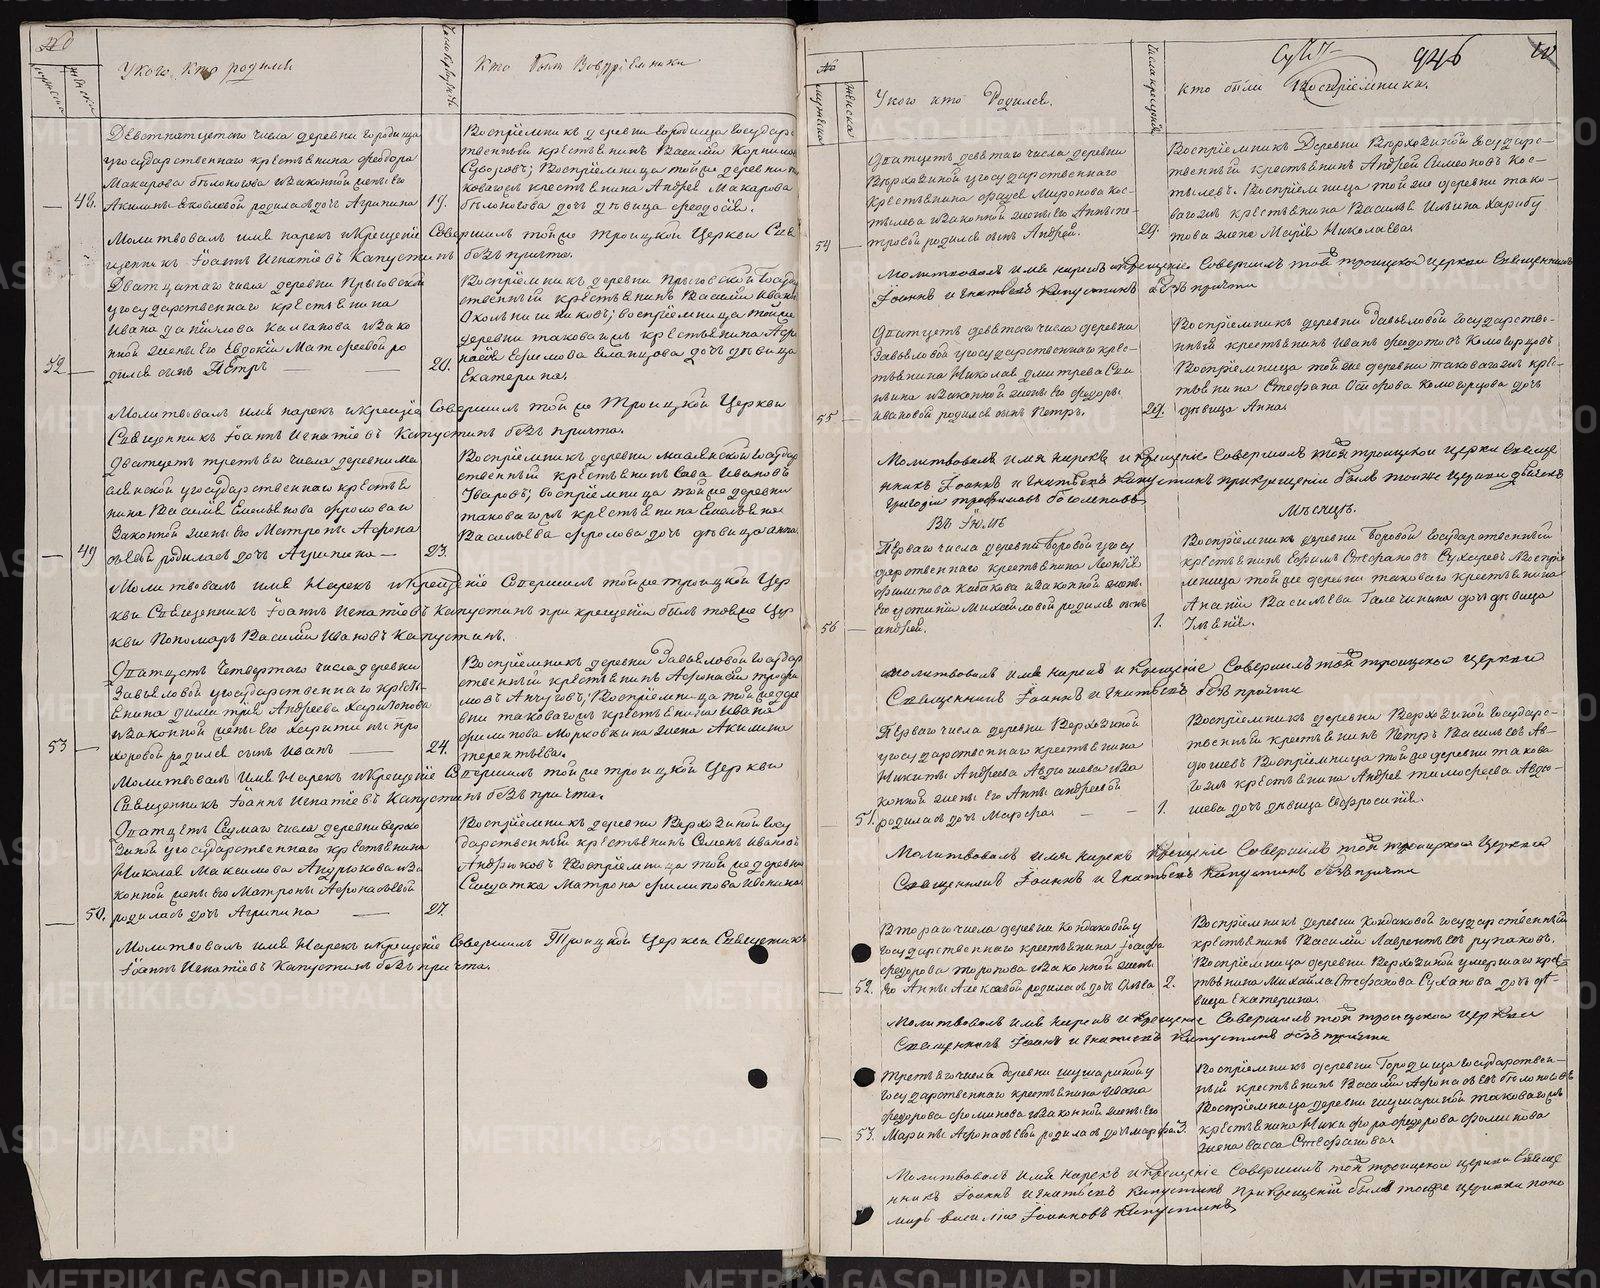 №
мужеска
женска
У кого кто родился
Число крещенія
Кто были Воспріемники
Девятнатцетаго числа деревни городища
у государственнаго крестьянина Феодора
Макарова Бѣлоногова и законной жены его
48. Акилины Яковлевой родилась дочь Агрипина 19.
Воспріемникъ деревни городища государс
твенный крестьянинъ Василій Корниловъ
Суворовъ; Воспріемница той же деревни та
коваго ж крестьянина Андрея Макарова
Бѣлоногова дочь дѣвица Феодосія.
Молитвовалъ имя нарекъ и Крещеніе Совершилъ той же Троицкой Церкви Свя
щенникъ Іоаннъ Игнатіевъ Капустинъ безъ причта.
Дватцатаго числа деревни Прыговской
у государственнаго крестьянина
Ивана Данилова и зако
нной жены его Евдокіи Матфеевой ро
52 дился сынъ Петръ 20.
Воспріемникъ деревни Прыговской Госуда
ственный крестьянинъ Василій Ивановъ
воспріемница той же
деревни таковаго ж крестьянина Афа
насія Ефимова Еланцова дочь дѣвица
Екатерина.
Молитвовалъ имя нарекъ и Крещеніе Совершилъ той же Троицкой Церкви
Священникъ Іоаннъ Игнатіевъ Капустинъ безъ причта.
Дватцеть третьяго числа деревни Ма
слянской у государственнаго крестья
нина Василія Емельянова Фролова и
Законной жены его Матроны Афона
49 сьевой родилась дочь Агрипина 23.
Воспріемникъ деревни Маслянской Государ
ственный крестьянинъ Сава Ивановъ
Уваровъ; воспріемница той же деревни
таковаго ж крестьянина Емельяна
Васильева Фролова дочь дѣвица Анна
Молитвовалъ имя Нарекъ и Крещеніе Совершилъ той же троицкой Цер
кви Священникъ Іоаннъ Игнатіевъ Капустинъ при крещеніи былъ тояже Цер
кви Пономарь Василій Ивановъ Капустинъ.
Дватцеть Четвертаго числа деревни
Завьяловой у государственнаго кресть
янина Димитрія Андреева Харитонова
и законной жены его Харитины Про
53 хоровой родился сынъ Иванъ 24.
Воспріемникъ деревни Завьяловой Государ
ственный крестьянинъ Афонасій Трофи
мовъ Анчуговъ; Воспріемница той же дере
вни таковаго ж крестьянина Ивана
Филипова Морковкина жена Акилина
терентьева.
Молитвовалъ имя Нарекъ и Крещеніе Совершилъ той же троицкой Церкви
Священникъ Іоаннъ Игнатіевъ Капустинъ безъ причта.
Дватцеть Седмаго числа деревни Верхо
зиной у государственнаго крестьянина
Николая Максимова Андрюкова и за
конной жены его Матроны Афонасьевой
50. родилась дочь Агрипина 27.
Воспріемникъ деревни Верхозиной Госу
дарственный крестьянинъ Семенъ Ивановъ
Андрюковъ Воспріемница той же деревни
Солдатка Матрона Филипова
Молитвовалъ имя Нарекъ и Крещеніе Совершилъ Троицкой Церкви Священникъ
Іоаннъ Игнатіевъ Капустинъ безъ причта.
946
№
мужеска
женска
У кого кто Родился.
Число крещенія
кто были Воспріемники.
Дватцеть девятаго числа деревни
Верхозиной у государственнаго
Крестьянина Фадея Миронова Кос
тылева и законной жены его Анны Пе
54 тровой родился сынъ Андрей. 29.
Воспріемникъ Деревни Верхозиной Государс
твенный крестьянинъ Андрей Симеоновъ Кос
тылевъ. Воспріемница той же деревни тако
ваго ж крестьянина Василья Ильина
жена Марія Николаева
Молитвовалъ имя нарекъ и Крещеніе Совершилъ той троицкой церкви Священникъ
Іоаннъ Игнатьевъ Капустинъ безъ причта
Дватцеть девятаго числа деревни
Завьяловой у государственнаго крес
тьянина Николая Дмитрева
и законной жены его Федоры
55 Ивановой родился сынъ Петръ. 29.
Воспріемникъ деревни Завьяловой Государстве
нный крестьянинъ Иванъ Федотовъ Комогорцовъ
Воспріемница той же деревни таковаго ж кре
стьянина Стефана Комогорцова дочь
дѣвица Анна
Молитвовалъ имя нарекъ и крещеніе Совершилъ той троицкой церкви Священ
никъ Іоаннъ Игнатьевъ Капустинъ при крещеніи былъ тояже церкви дьячекъ
Трофимовъ Богомоловъ
Въ Іюлѣ Мѣсяцѣ.
Перваго числа деревни Боровой у госу
дарственнаго крестьянина Леонтія
Филипова Кабакова и законной жены
его Устиніи Михайловой родился сынъ
56 Андрей. 1.
Воспріемникъ деревни Боровой Государственный
крестьянинъ Ефимъ Стефановъ Сухаревъ Воспрі
емница той же деревни таковаго крестьянина
Ананіи Васильева Галечинина дочь дѣвица
Молитвовалъ имя нарекъ и крещеніе Совершилъ той троицкой церкви
Священникъ Іоаннъ Игнатьевъ безъ причта
Перваго числа деревни Верхозиной
у государственнаго крестьянина
Никиты Андреева Авдюшева и за
конной жены его Анны Андреевой
51. родилась дочь Марфа 1.
Воспріемникъ деревни Верхозиной Государс
твенный крестьянинъ Петръ Васильевъ Ав
дюшевъ Воспріемница той же деревни такова
го ж крестьянина Андрея Тимофеева Авдю
шева дочь дѣвица Евфросинія.
Молитвовалъ имя нарекъ крещеніе Совершилъ той троицкой Церкви
Священникъ Іоаннъ Игнатьевъ Капустинъ безъ причта
Втораго числа деревни Кондаковой у
государственнаго крестьянина Іосифа
Федорова Торопова и законной жены
52. его Анны Алексѣевой родилась дочь Ольга 2.
Воспріемникъ деревни Кондаковой государственный
крестьянинъ Василій Лаврентьевъ Русаковъ.
Воспріемница деревни Верхозиной умершаго крес
тьянина Михайла Стефанова Суханова дочь дѣ
вица Екатерина.
Молитвовалъ имя нарекъ и крещеніе Совершилъ той троицкой церкви
Священникъ Іоаннъ Игнатьевъ Капустинъ безъ причта
Третьяго числа деревни Шушариной у
государственнаго крестьянина Ивана
Федорова Фоминова и законной жены его
53. Марины Афонасьевой родилась дочь Марфа 3.
Воспріемникъ деревни Городища государствен
ный крестьянинъ Василій Афонасьевъ Бѣлоноговъ
Воспріемница деревни Шушариной таковаго ж
крестьянина Никифора Федорова Фоминова
жена Васса Стефанова
Молитвовалъ имя нарекъ и крещеніе Совершилъ той троицкой церкви Свяще
нникъ Іоаннъ Игнатьевъ Капустинъ При крещеніи былъ тояже церкви поно
марь Василій Іоанновъ Капустинъ
METRIKI.GASO-URAL.RU